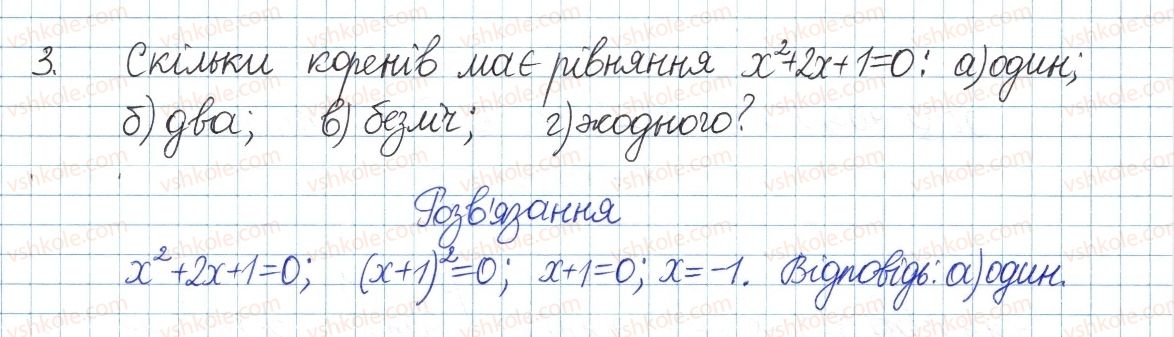 3. Скільки коренів має рівняння x²+2x+1=0: а) один;
б) два; в) безліч; г) жодного?
Розв'язання
x²+2x+1=0; (x+1)²=0; x+1=0; x=-1. Відповідь: а) один.